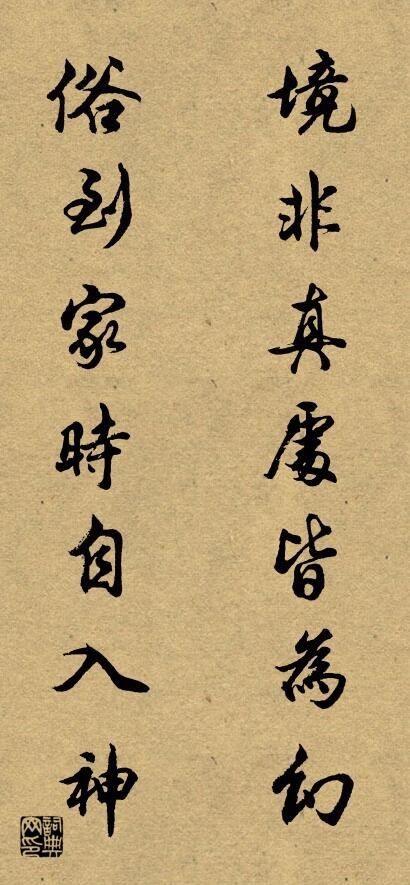 境非真處皆為幻
俗到家時自入神
詞典网印